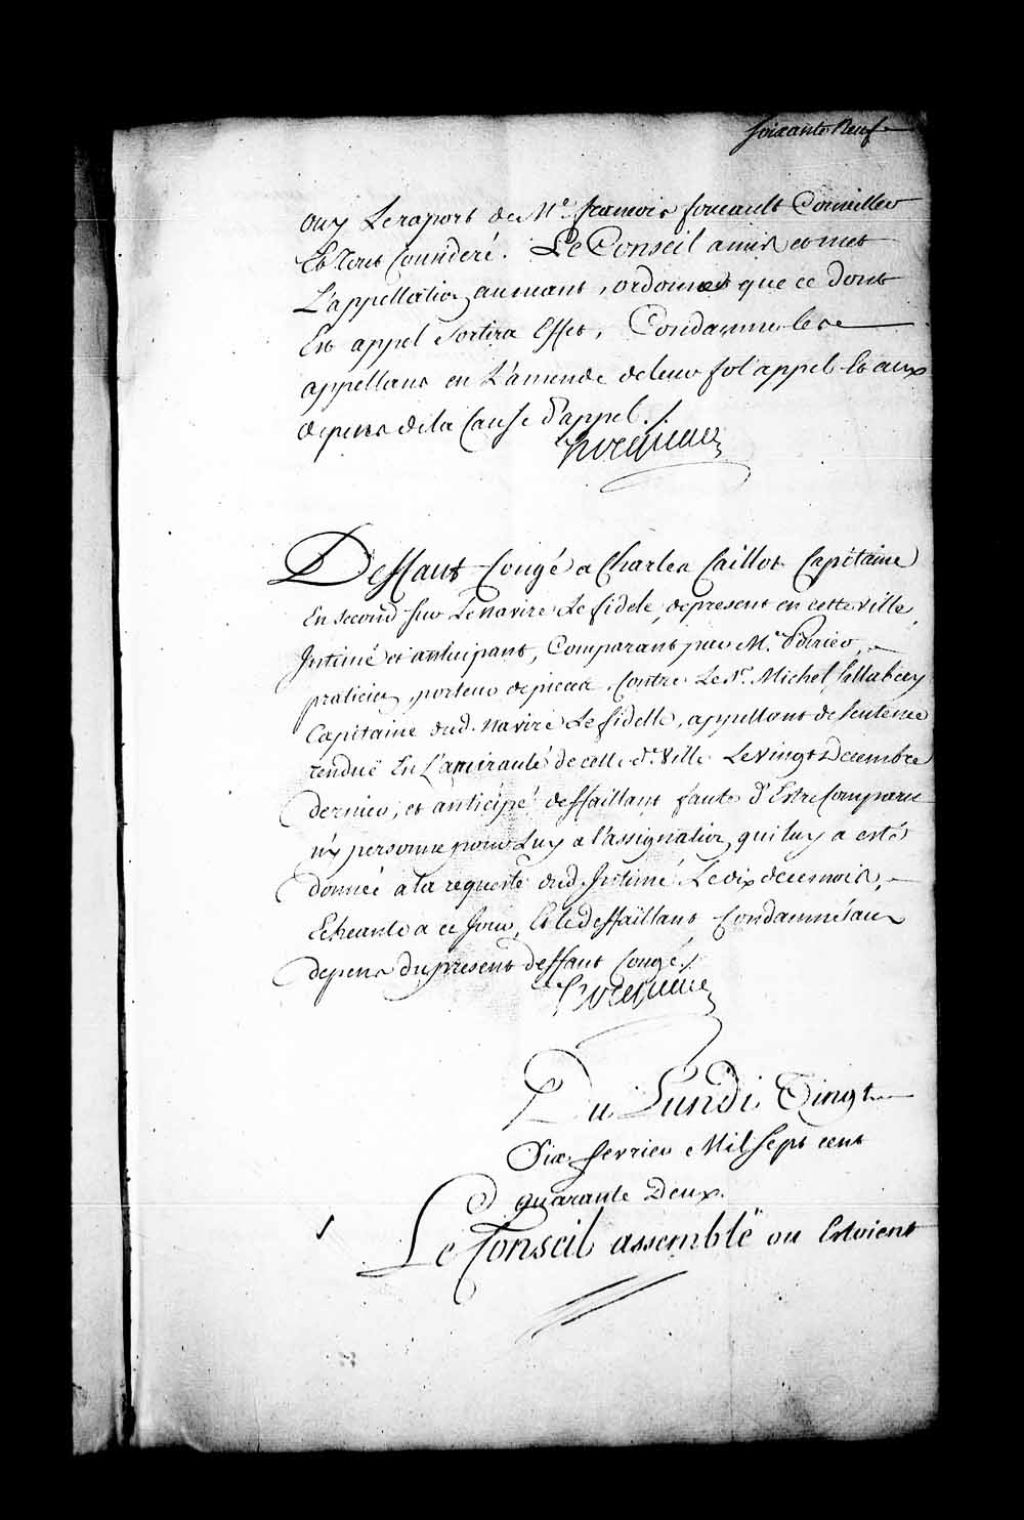 soixante Neuf
ouy Le raport de Me. francois foucault Conseiller
Et Tout Consideré. Le Conseil a mis et met
L'appellation au neant, ordonne que ce dont
Est appel sortira Effet, Condamne les
appellans en L'amende de leur fol appel Et aux
depens de la Cause d'appel ./.
hocquart
Deffaut Congé a Charles Caillot Capitaine
En second sur Le navire Le fidele, de present en cette ville,
Intimé et anticipant, Comparant par Me. Poirier
praticien, porteur de pieces. Contre Le Sr. Michel Sallaberry
Capitaine dud. navire Le fidelle, appellant de sentence
renduë En L'amirauté de cette de. Ville Le vingt Decembre
dernier, et anticipé deffaillant faute d'Estre Comparu
ny personne pour Luy a l'assignation qui luy a esté
donnée a la requeste dud. Intimé Le dix de ce mois,
Echeante a ce Jour, Et le deffaillant Condamné aux
depens du present deffaut Congé ./.
hocquart
Du Lundi Vingt
Six fevrier Mil Sept cent
quarante Deux.
Le Conseil assemblé ou Estoient